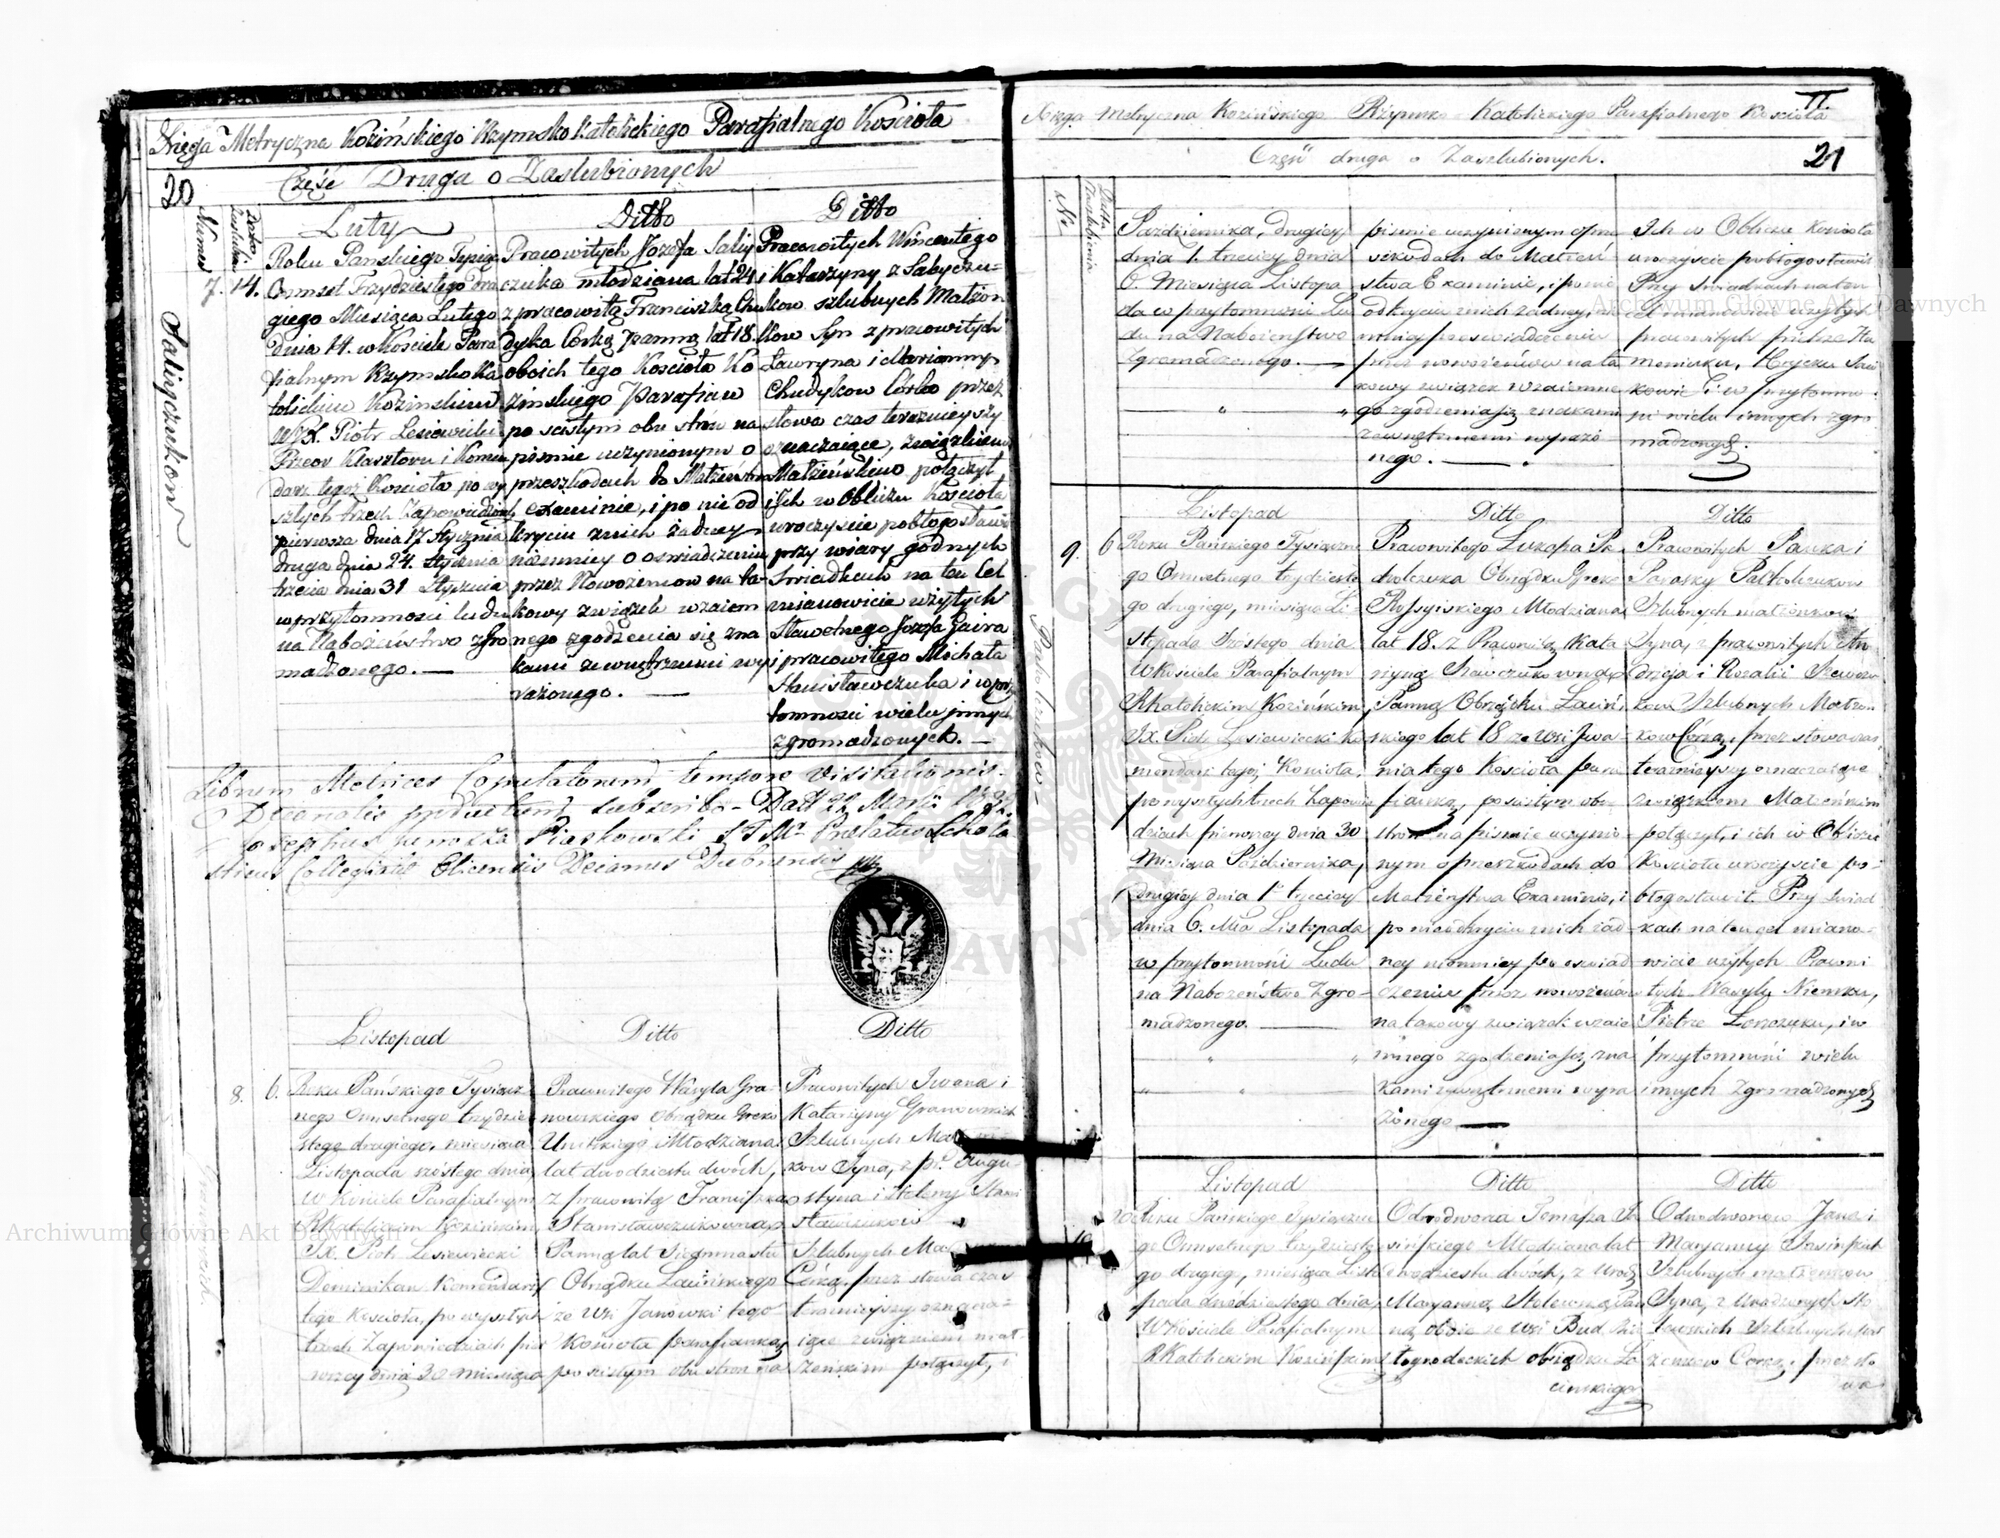 Xsięga Metryczna Kozińskiego Rzymsko Katolickiego Parafialnego Kościoła
20
Część Druga o Zaslubionych
Numer
Luty
Roku Pańskiego Tysiąc
Osmset Trzydziestego dru
giego Miesiąca Lutego
dnia 14. w Kościele Para
fialnym Rzymsko Ka
tolickim Kozinskim
JX. Piotr Lesiewicki
Przeor Klasztoru i Komen
darz tegoż Kościoła po wy
szłych trzech Zapowiedziach
pierwsza dnia 17 Stycznia
druga dnia 24. Stycznia
trzecia dnia 31 Stycznia
w przytomności ludu
na Nabożeństwo zgro
madzonego.
7. 14.
Saliyczukow
Ditto
Pracowitych Józefa Saliy
czuka młodziana lat 24 i
z pracowitą Franciszką Chu
dyka Córką panną lat 18.
oboich tego Kościoła Ko
zinskiego Parafian
po ścisłym obu stron na
pismie uczynionym o
przeszkodach do Małżeństwa
examinie, i po nie od
kryciu żnich żadney
niemniey o oswiadczeniu
przez Nowożeniow na ta-
kowy związek wzaiem
nego zgodzenia się zna
kami zewnętrznemi wy
rażonego.
Ditto
Pracowitych Wincentego
i Katarzyny z
kow szlubnych Małżon
kow Syn z pracowitych
Lawryna i Marianny
Chudykow Córko przez
słowa czas teraznieyszy
oznaczaiące, związkiem
Małżeńskim połączył
i Ich w Obliczu Kościoła
uroczyscie pobłogosławił
przy wiary godnych
Swiadkach na ten cel
mianowicie użytych
Sławetnego Józefa Gaira
i pracowitego Michała
Stanisławczuka i w przy
tomności wielu innych
zgromadzonych.
Librum Metrices Copulatorum tempore Visitationis
Decanalis productum subscribo. Datt 22 Martii 1832.
Josephus Junosza Piaskowski S T M Prelatus Schola
sticus Collegiatae Olicensis Decanus Dubnensis
Listopad
8. 6.
Roku Pańskiego Tysiącz
nego Osmsetnego trzydzie
stego drugiego, miesiąca
Listopada szóstego dnia
w Kościele Parafialnym
RKatolickim Kozińskim
JX. Piotr Lesiewicki
Dominikan Komendarz
tego Kościoła, po wyszłych
trzech Zapowiedziach pier
wszey dnia 30 miesiąca
Ditto
Pracowitego Wasyla Gra-
nowskiego Obrządku Greko
Unitskiego Młodziana
lat dwadziestu dwóch,
z pracowitą Franciszką
Stanisławczukowną
Panną lat Siedmnastu
Obrządku Łacińskiego
ze Wsi Janowki tego
Kościoła parafianką,
po ścisłym obu stron na
Ditto
Pracowitych Iwana i
Katarzyny Granowskich
Szlubnych Małżon
kow Syna, z pr. Augu-
styna i Heleny Stani
sławczukow
Szlubnych Małżon
Córką, przez słowa czas
teraznieyszy oznacza-
iące związkiem mał-
żeńskim połączył, i
Xięga Metryczna Kozińskiego Rzymsko Katolickiego Parafialnego Kościoła
11.
Część druga o Zaszlubionych.
21
No.
Października, drugiey
dnia 1. trzeciey dnia
6. Miesiąca Listopa
da w przytomności Lu
du na Nabożeństwo
zgromadzonego.
pismie uczynionym o prze
szkodach do Małżeń
stwa Examinie, i po nie
odkryciu znich żadney, nie
mniey po oswiadczeniu
przez nowożeniow na ta
kowy związek wzaiemne
go zgodzenia się znakami
zewnętrznemi wyrażo
nego.
Ich w Obliczu Kościoła
uroczyście pobłogosławił
Przy Swiadkach na ten
cel mianowicie użytych
pracowitych
kowie i w przytomno
ści wielu innych zgro
madzonych.
Listopad
9. 6
Roku Pańskiego Tysiączne
go Osmsetnego trzydzieste
go drugiego, miesiąca Li-
stopada Szóstego dnia
w Kościele Parafialnym
RKatolickim Kozińskim,
JX. Piotr Lesiewiecki Ko
mendarz tegoż Kościoła,
po wyszłych trzech Zapowie
dziach pierwszey dnia 30
Miesiąca Października,
drugiey dnia 1 trzeciey
dnia 6. Mca Listopada
w przytomności Ludu
na Nabożeństwo Zgro-
madzonego.
Ditto
Pracowitego Łukasza Pa
Obrządku Greko
Rossyiskiego Młodziana
lat 18. z Pracowitą Kata
rzyną Szewczukowną
Panną Obrządku Łaciń
skiego lat 18 ze wsi Iwa
nia tego Kościoła para
fianką, po ścisłym obu
stron na pismie uczynio-
nym o przeszkodach do
Małżeństwa Examinie, i
po nieodkryciu znich żad-
ney niemniey po oswiad
czeniu przez nowożeniow
na takowy związek wzaie
mnego zgodzenia się zna
kami zewnętrznemi wyra
żonego
Ditto
Pracowitych Pawła i
Paraski
Szlubnych małżonkow
Syna, z pracowitych An
drzeja i Rozalii Szewczu
kow Szlubnych Małżon
kow Córką, przez słowa czas
teraznieyszy oznaczaiące
związkiem Małżeńskim
połączył, i ich w Obliczu
Kościoła uroczyscie po-
błogosławił. Przy Swiad
kach na ten cel miano-
wicie użytych Pracowi
tych Wasylu
Piotrze i w
przytomności wielu
innych Zgromadzonych
Listopad
10
Roku Pańskiego Tysiączne
go Osmsetnego trzydzieste
go drugiego, miesiąca Listo
pada dwódziestego dnia
w Kościele Parafialnym
RKatolickim Kozińskim
Ditto
Odnodworca Tomasza Ja
sińskiego Młodziana lat
dwadziestu dwóch, z Urodz
Maryanną Pan
ną oboie ze wsi Bud
obrządku Ła
cinskiego
Ditto
Odnodworcow Jana i
Maryanny Jasińskich
Szlubnych małżonkow
Syna, z Urodzonych
Szlubnych Mał
żonkow Córką, przez sło
wa